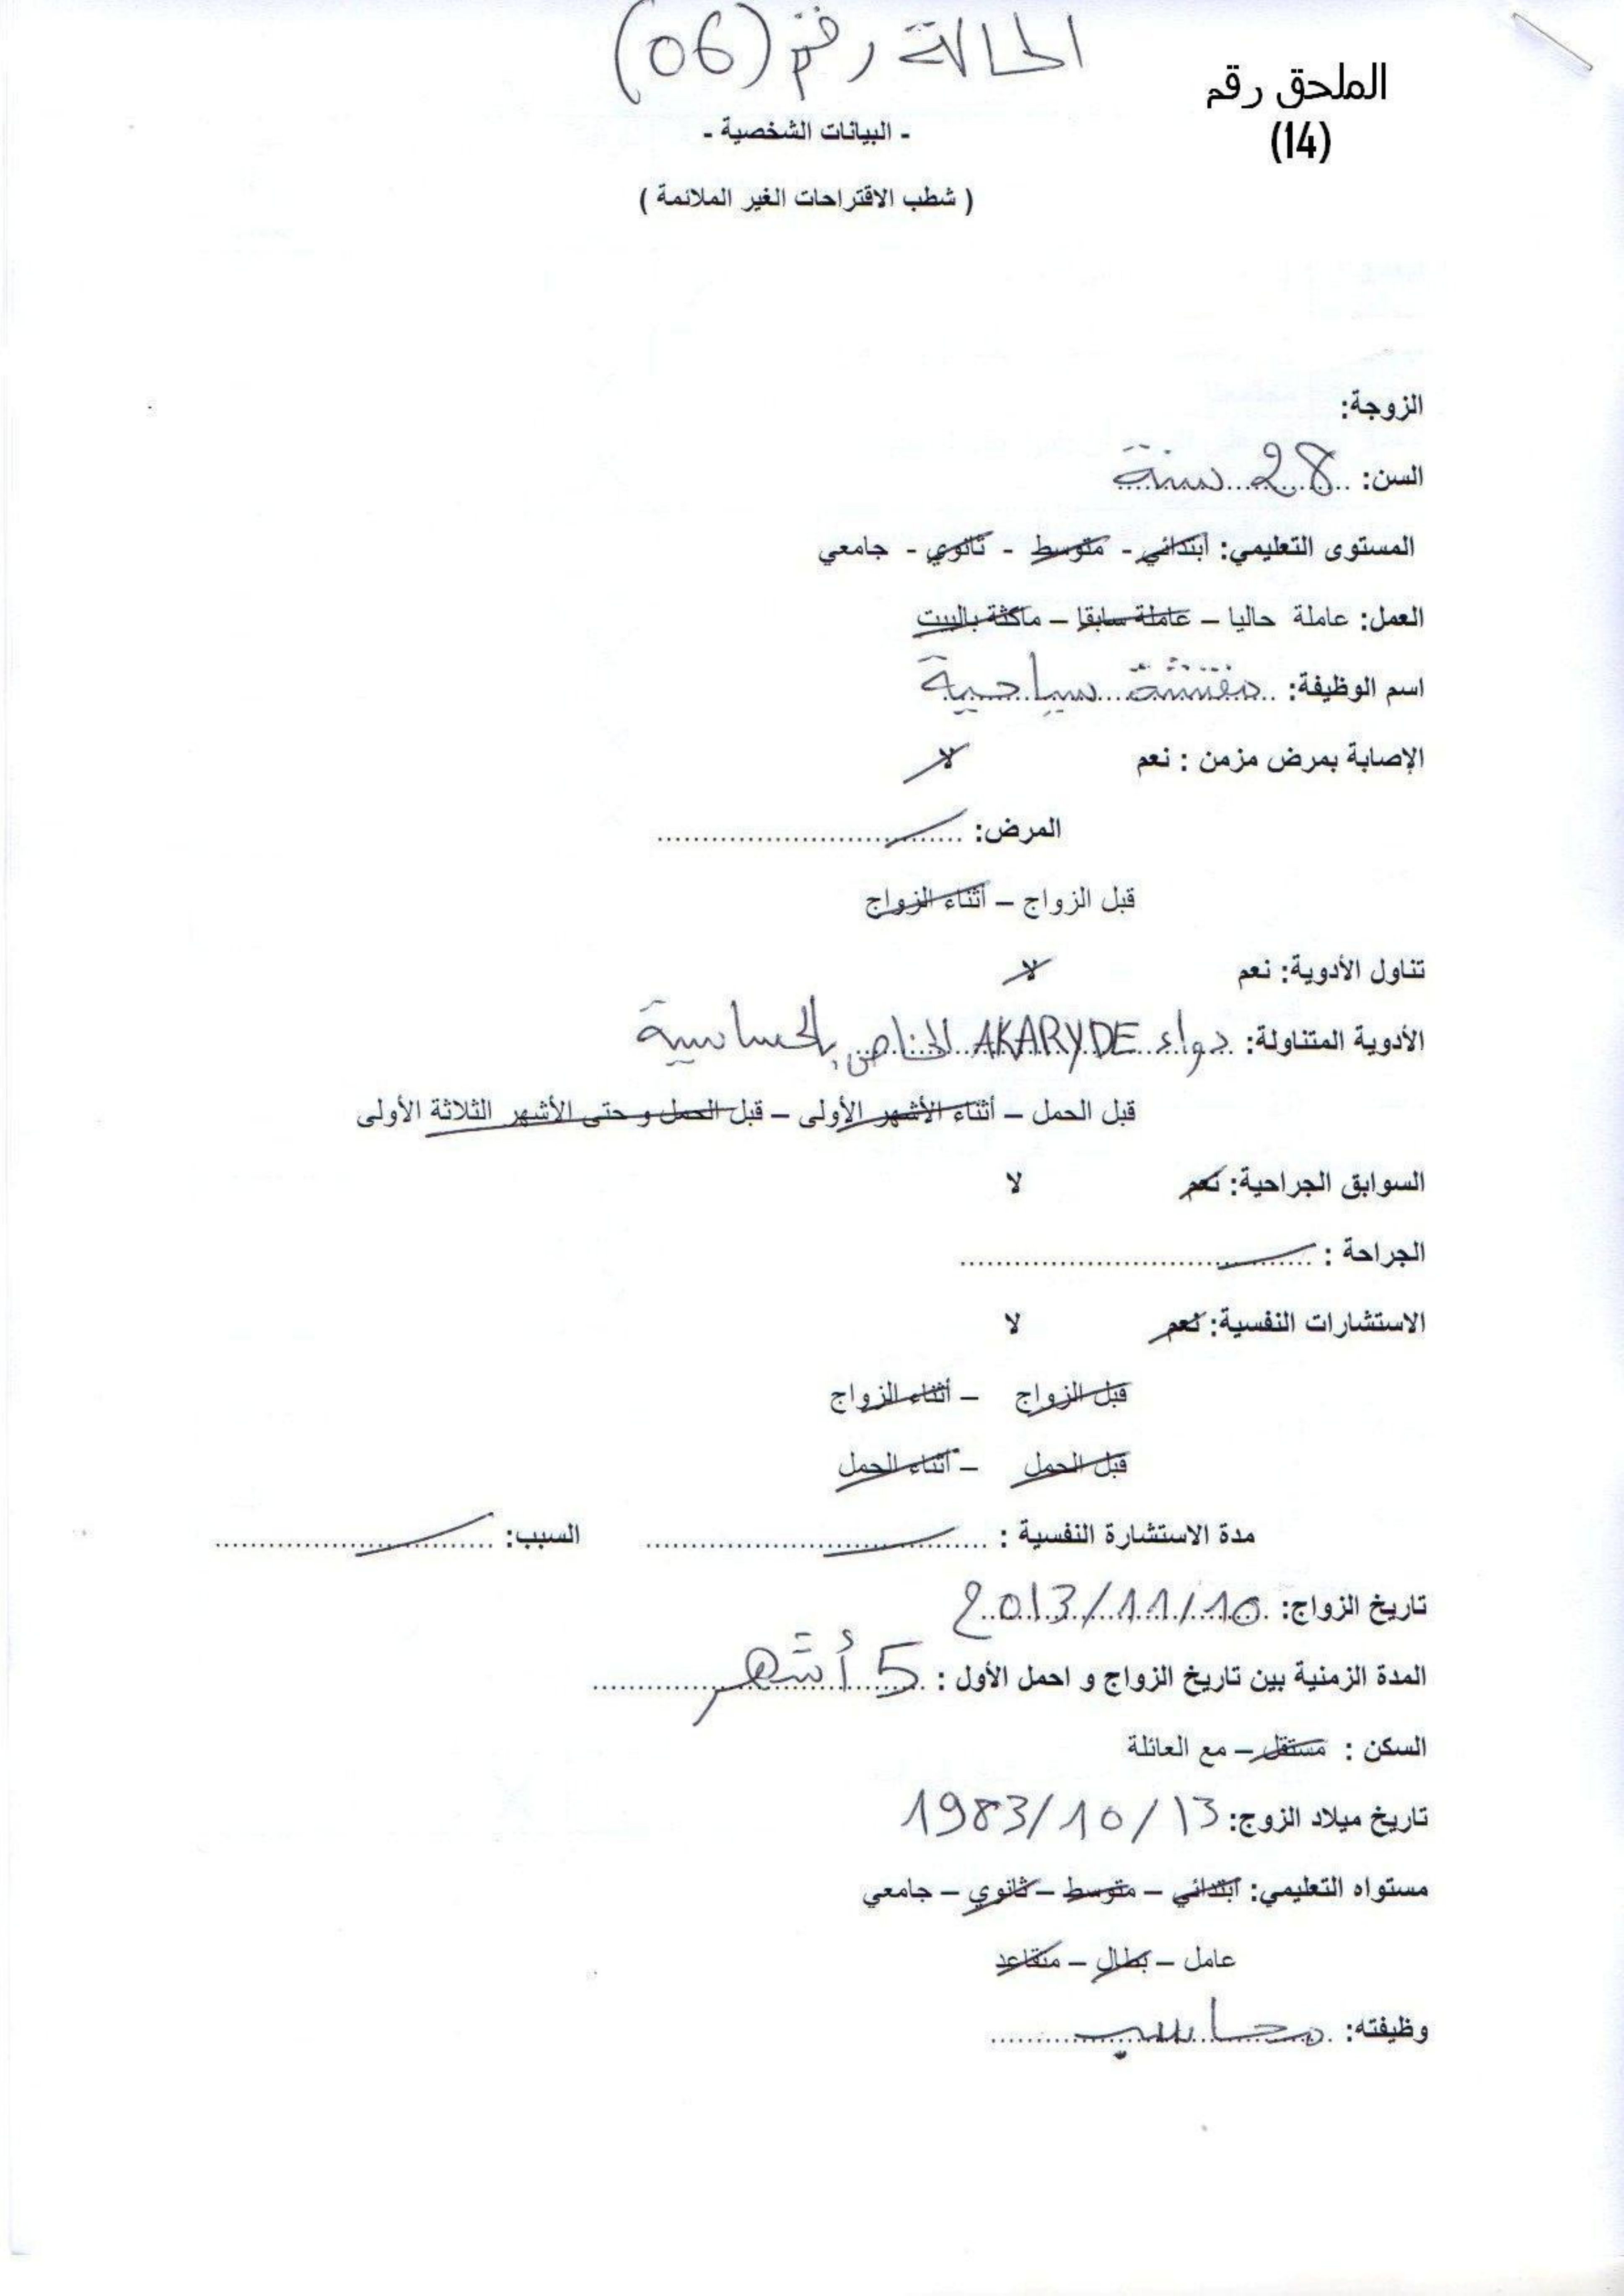 الحالة رقم (06)
الملحق رقم
(14)
- البيانات الشخصية -
( شطب الاقتراحات الغير الملائمة )
الزوجة:
السن: 28 سنة
المستوى التعليمي: ابتدائي - متوسط - ثانوي - جامعي
العمل: عاملة حاليا – عاملة سابقا – ماكثة بالبيت
اسم الوظيفة: مفتشة سياحية
الإصابة بمرض مزمن : نعم لا
المرض: ..................................
قبل الزواج – أثناء الزواج
تناول الأدوية: نعم لا
الأدوية المتناولة: دواء AKARYDE الخاص بالحساسية
قبل الحمل – أثناء الأشهر الأولى – قبل الحمل و حتى الأشهر الثلاثة الأولى
السوابق الجراحية: نعم لا
الجراحة : .......................................
الاستشارات النفسية: نعم لا
قبل الزواج – أثناء الزواج
قبل الحمل – أثناء الحمل
مدة الاستشارة النفسية : ...................................... السبب: ...............................
تاريخ الزواج: 2013/11/10
المدة الزمنية بين تاريخ الزواج و احمل الأول : 5 أشهر
السكن : مستقل – مع العائلة
تاريخ ميلاد الزوج: 1983/10/13
مستواه التعليمي: ابتدائي – متوسط – ثانوي – جامعي
عامل – بطال – متقاعد
وظيفته: محاسب